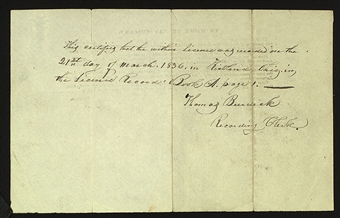 This certifies that the within license was recorded on the
21st day of March. 1836. in Kirtland Ohio, in
the License Record. Book A. page 1.
Thomas Burdick
Recording Clerk.